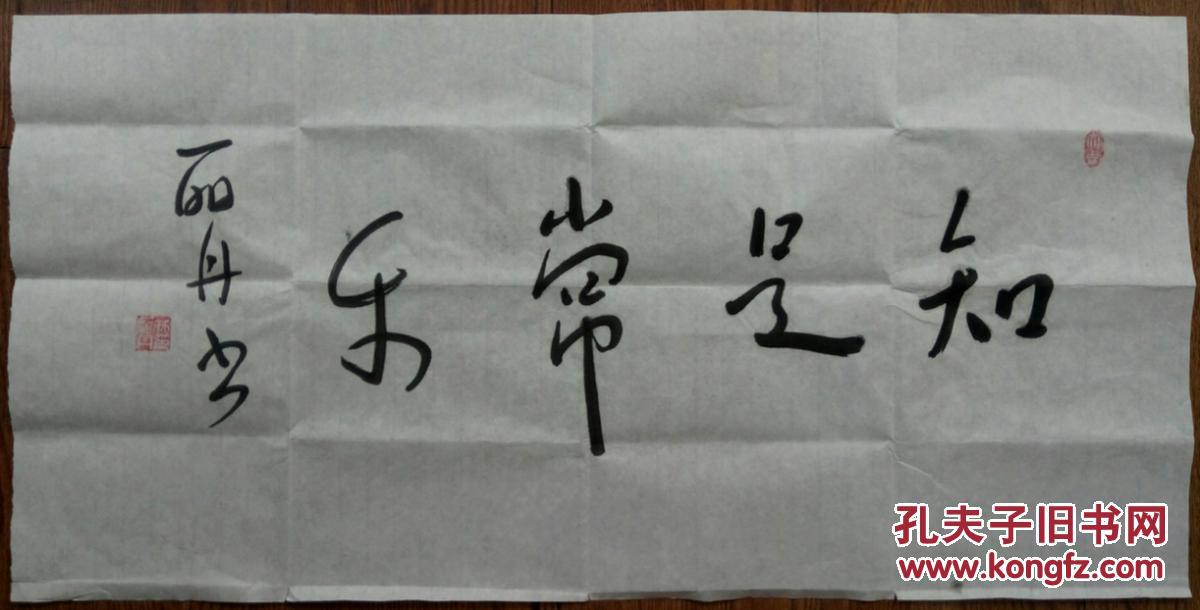 知足常乐
丽丹书
孔夫子旧书网
www.kongfz.com